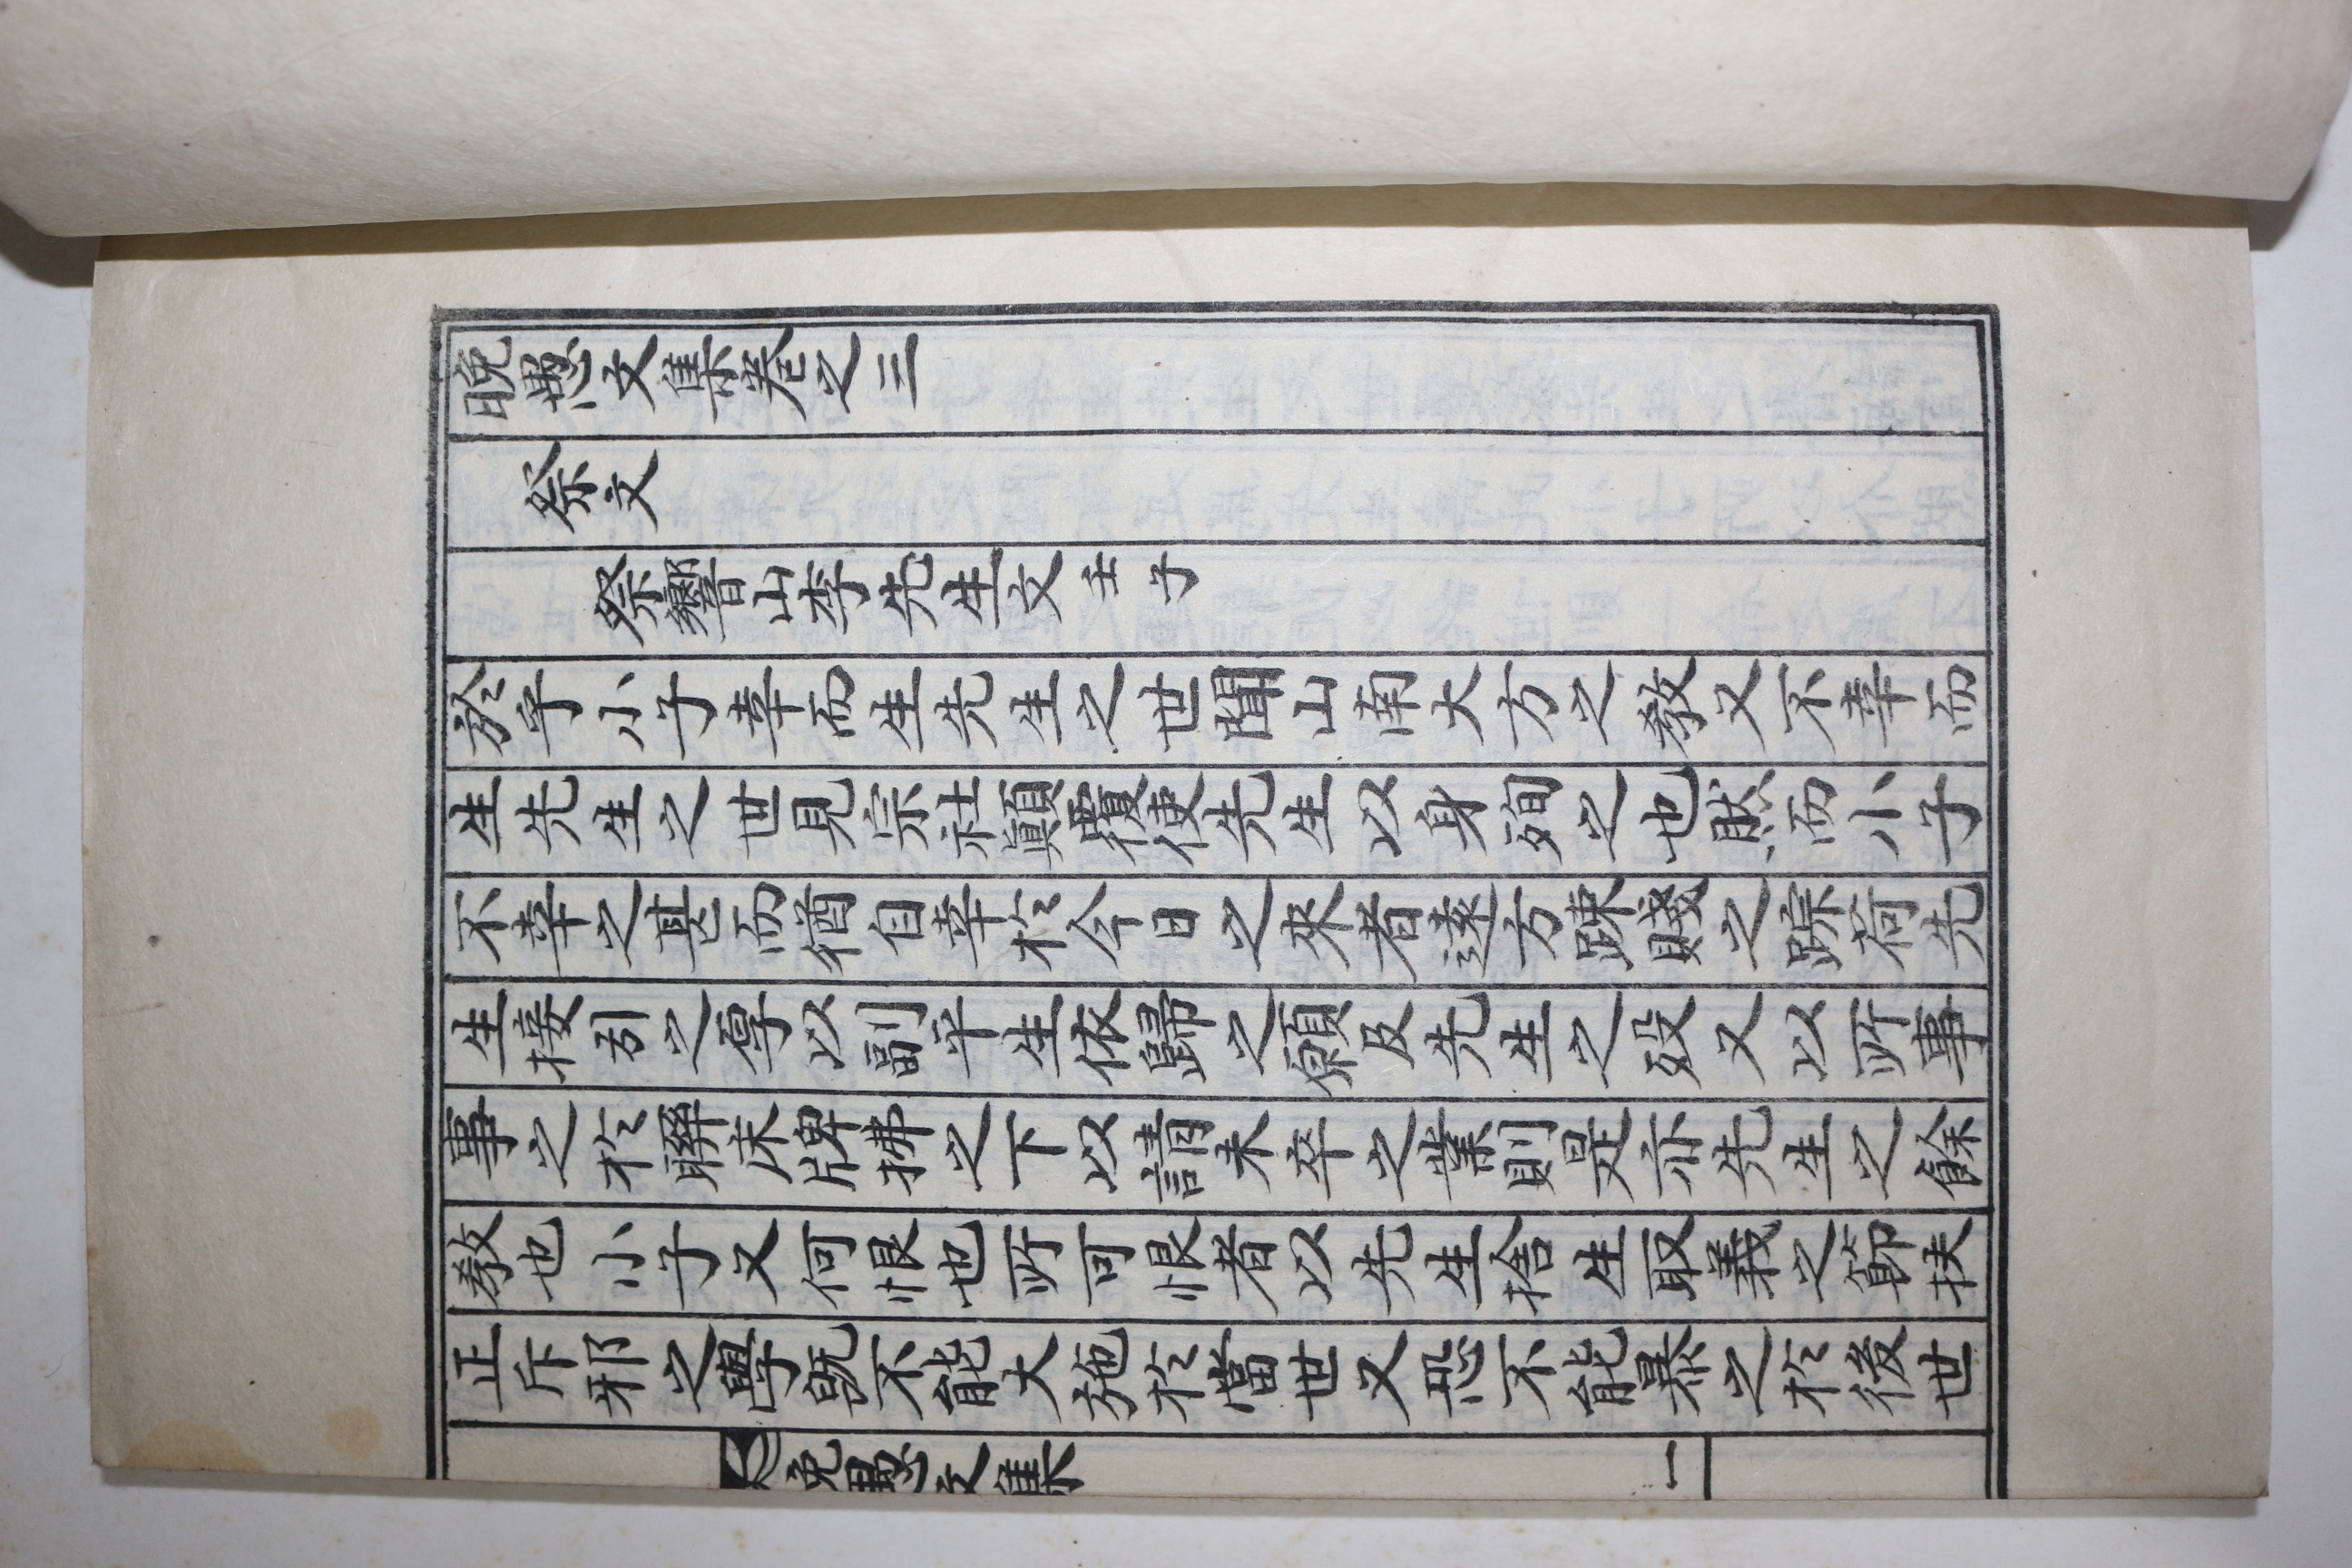 晚愚文集卷之三
祭文
祭響山李先生文 壬子
於乎小子幸而生先生之世聞山南大方之敎又不幸而
生先生之世見宗社顚覆使先生以身殉之也然而小子
不幸之甚而猶自幸於今日之來者遠方踈賤之蹤荷先
生接引之厚以副平生依歸之願及先生之歿又以所事
事之於聯床牌拂之下以請未卒之業則是亦先生之餘
敎也小子又何恨也所可恨者以先生捨生取義之節扶
正斥邪之學旣不能大施於當世又恐不能暴之於後世
晚愚文集 一